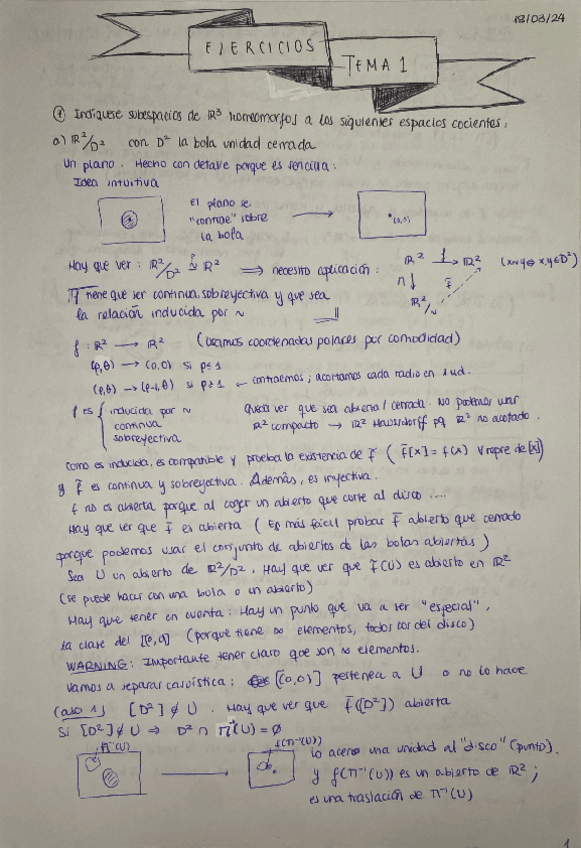 18/03/24
EJERCICIOS
TEMA 1
① Indíquese subespacios de ℝ³ homeomorfos a los siguientes espacios cocientes:
a) ℝ²/D² con D² la bola unidad cerrada
Un plano. Hecho con detalle porque es sencilla:
Idea intuitiva
El plano se
"contrae" sobre
la bola
(0,0)
Hay que ver: ℝ²/D² ≅? ℝ² ⟹ necesito aplicación:
ℝ² f→ ℝ² (x~y ⇔ x,y∈D²)
Π↓ f̄
ℝ²/~
f tiene que ser continua, sobreyectiva y que sea
la relación inducida por ~
f: ℝ² → ℝ² (usamos coordenadas polares por comodidad)
(ρ,θ) → (0,0) si ρ≤1
(ρ,θ) → (ρ-1,θ) si ρ≥1 ← contraemos; acortamos cada radio en 1 ud.
f es { inducida por ~
continua
sobreyectiva
Queda ver que sea abierta/cerrada. No podemos usar
ℝ² compacto → ℝ² Hausdorff pq ℝ² no acotado.
Como es inducida, es compatible y prueba la existencia de f̄ (f̄[x] = f(x) ∀ repre de [x])
y f̄ es continua y sobreyectiva. Además, es inyectiva.
f no es abierta porque al coger un abierto que corte al disco ....
Hay que ver que f̄ es abierta (Es más fácil probar f̄ abierto que cerrado
porque podemos usar el conjunto de abiertos de las bolas abiertas)
Sea U un abierto de ℝ²/D². Hay que ver que f̄(U) es abierto en ℝ²
(se puede hacer con una bola o un abierto)
Hay que tener en cuenta: Hay un punto que va a ser "especial",
la clase del (porque tiene ∞ elementos, todos los del disco)
WARNING: Importante tener claro que son ∞ elementos.
Vamos a separar casuística: [(0,0)] pertenece a U o no lo hace
(caso 1) [D²] ∉ U. Hay que ver que f̄([D²]) abierta
Si [D²] ∉ U ⇒ D² ∩ Π⁻¹(U) = ∅
Π⁻¹(U)
f(Π⁻¹(U))
lo acerco una unidad al "disco" (punto).
y f(Π⁻¹(U)) es un abierto de ℝ²;
es una traslación de Π⁻¹(U)
1